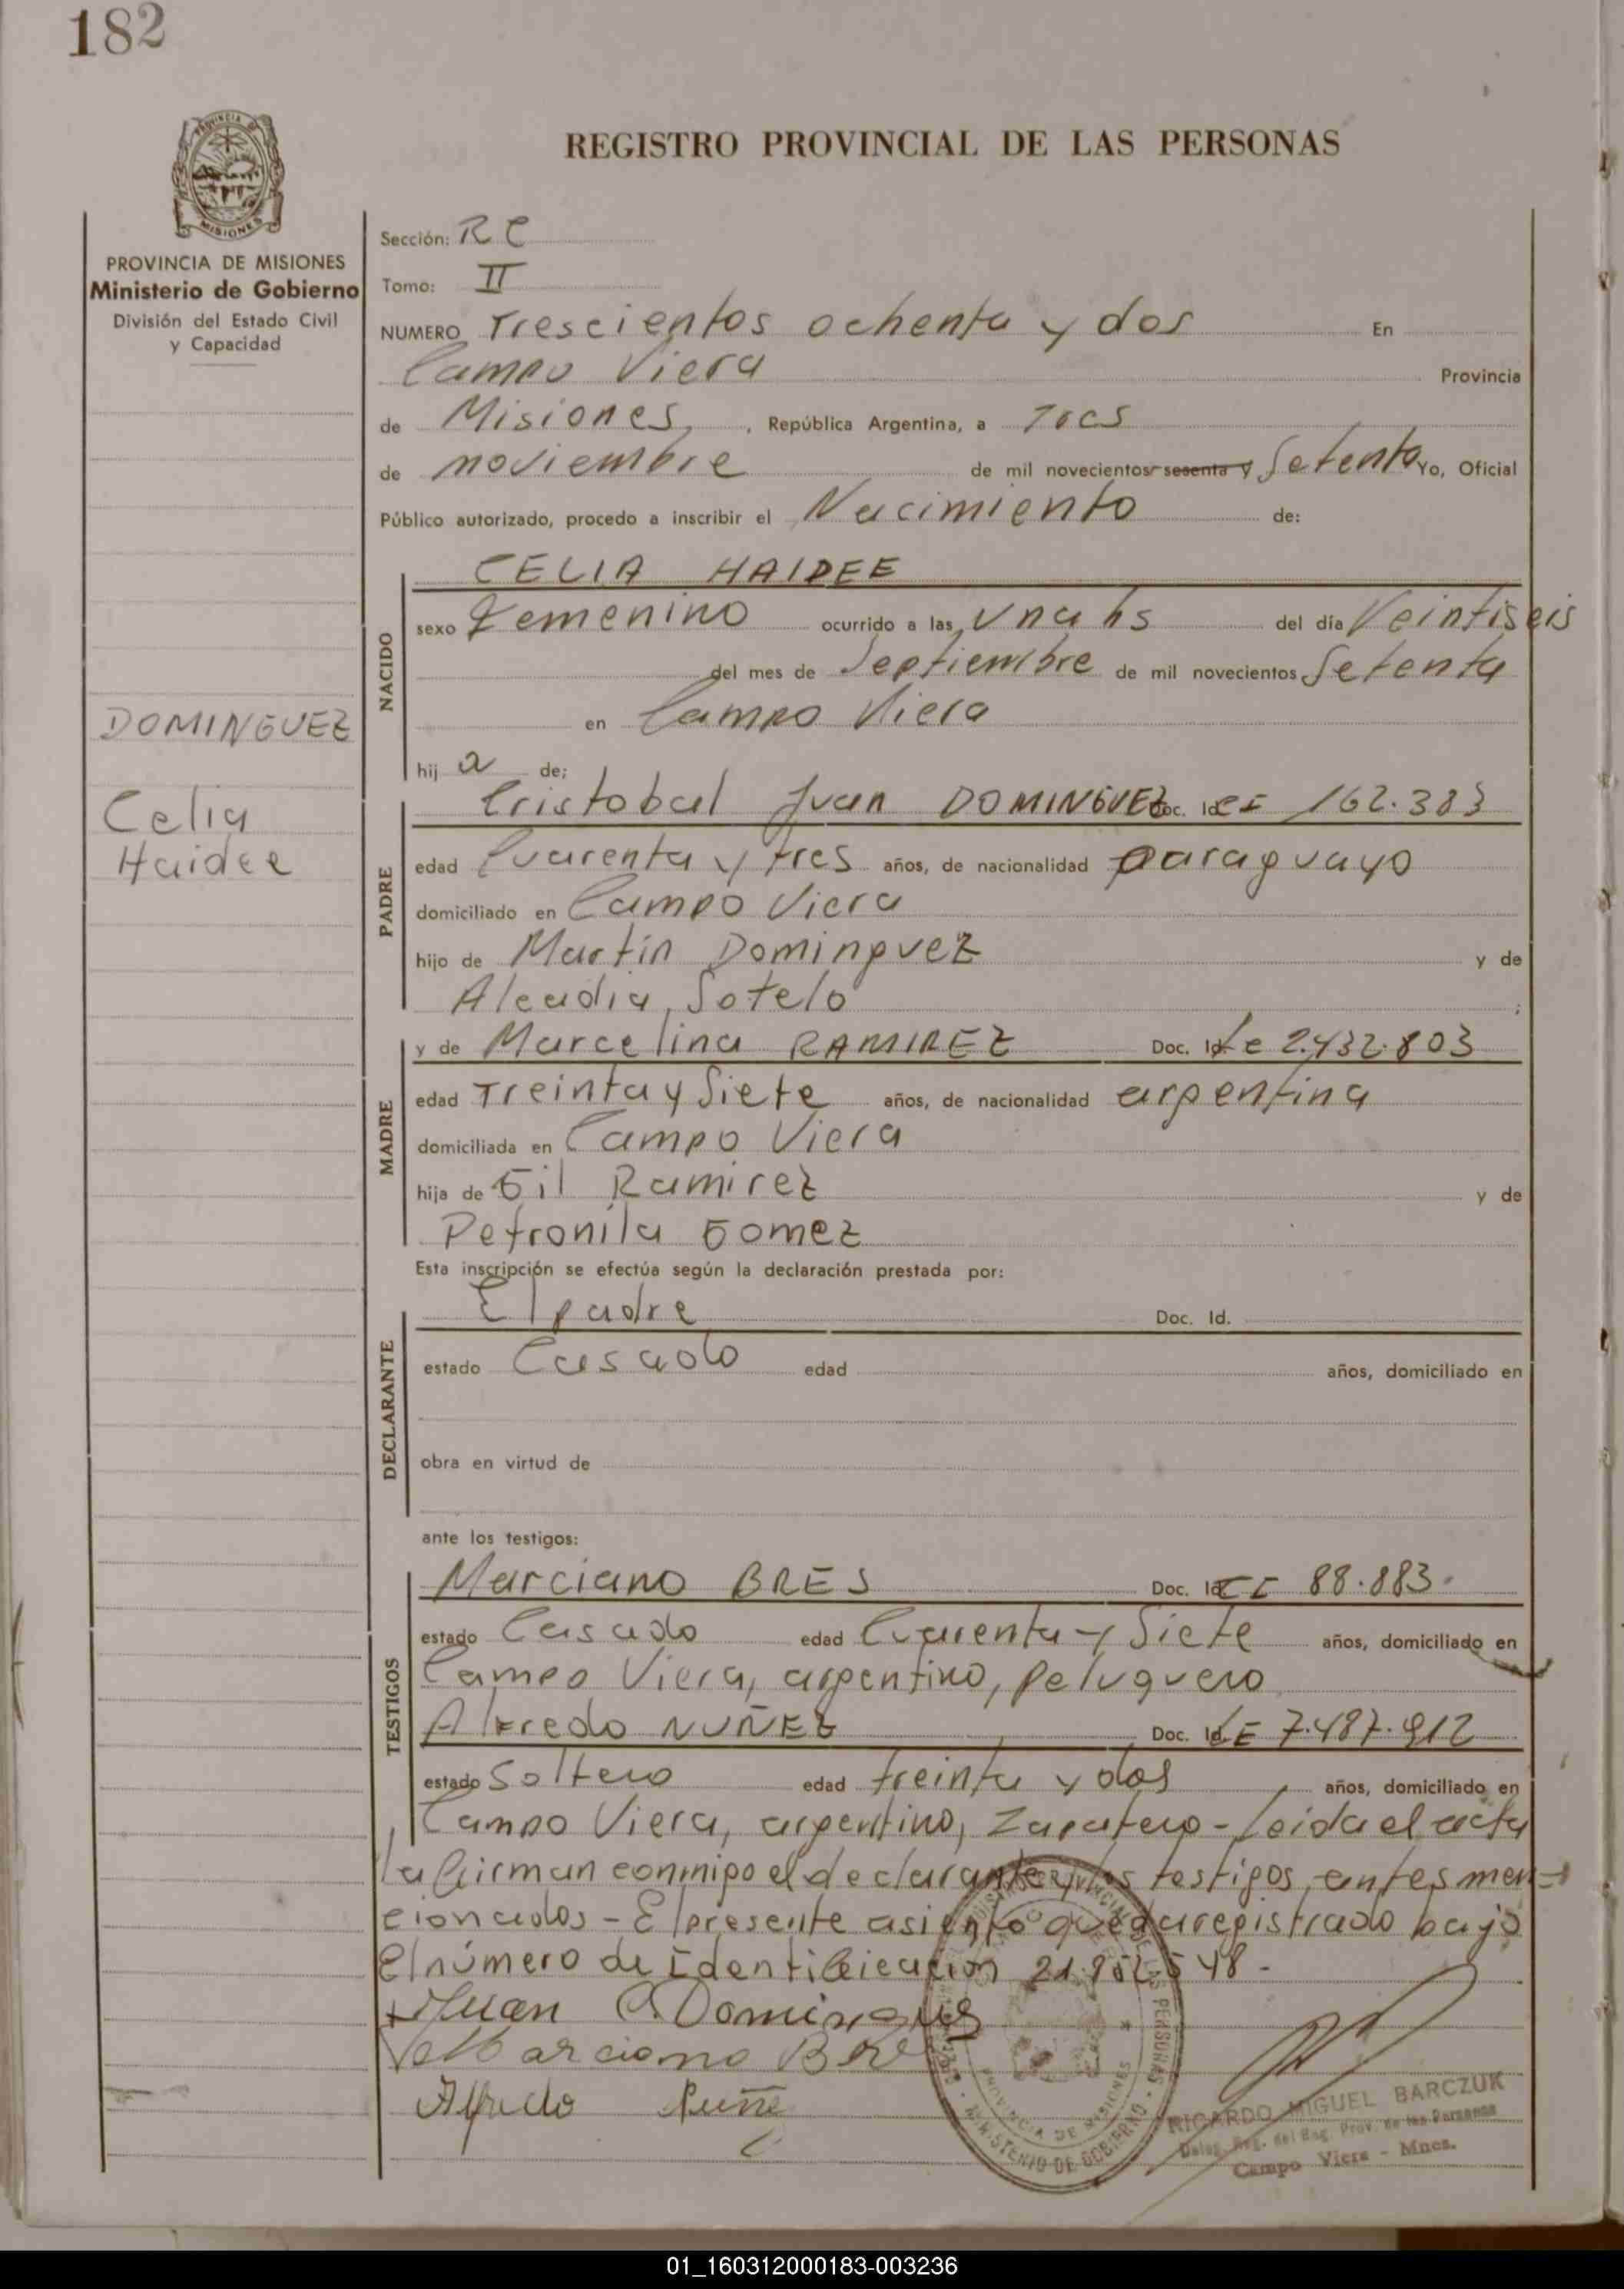 182
REGISTRO PROVINCIAL DE LAS PERSONAS
PROVINCIA DE MISIONES
Ministerio de Gobierno
División del Estado Civil
y Capacidad
DOMINGUEZ
Celia
Haidee
Sección: R C
Tomo: II
NUMERO Trescientos ochenta y dos En
Campo Viera Provincia
de Misiones, República Argentina, a Tres
de noviembre de mil novecientos sesenta y Setenta Yo, Oficial
Público autorizado, procedo a inscribir el Nacimiento de:
NACIDO
CELIA HAIDEE
sexo Femenino ocurrido a las Una hs del día Veintiseis
del mes de Septiembre de mil novecientos Setenta
en Campo Viera
hij a de;
PADRE
Cristobal Juan DOMINGUEZ Doc. Id. CI 162.383
edad Cuarenta y tres años, de nacionalidad paraguayo
domiciliado en Campo Viera
hijo de Martín Dominguez y de
Alcadia Sotelo ;
MADRE
y de Marcelina RAMIREZ Doc. Id. Le 2.432.803
edad Treinta y Siete años, de nacionalidad argentina
domiciliada en Campo Viera
hija de Gil Ramirez y de
Petronila Gomez
Esta inscripción se efectúa según la declaración prestada por:
DECLARANTE
El padre Doc. Id.
estado Casado edad años, domiciliado en
obra en virtud de
ante los testigos:
TESTIGOS
Marciano BRES Doc. Id. CI 88.883.
estado Casado edad Cuarenta y Siete años, domiciliado en
Campo Viera, argentino, peluquero
Alfredo NUÑEZ Doc. Id. LE 7.487.912
estado Soltero edad treinta y dos años, domiciliado en
Campo Viera, argentino, Zapatero - Leida el acta
la firman conmigo el declarante y los testigos antes men-
cionados - El presente asiento queda registrado bajo
El número de Identificicacion 548 -
Juan C Dominguez
Marciano Bre
Alfredo Nuñe
PROVINCIA DE MISIONES
MINISTERIO DE GOBIERNO
RICARDO MIGUEL BARCZUK
Deleg. Reg. del Reg. Prov. de las Personas
Campo Viera - Mnes.
01_160312000183-003236